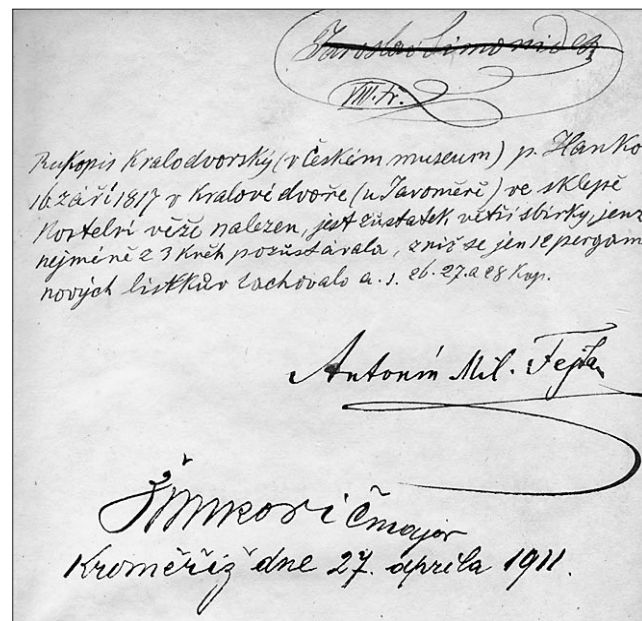 Jaroslav Simonides
VIII. tř.
Rukopis Kralodvorský (v Českém museum) p. Hanko
16 září 1817 v Kralové dvoře (u Jaroměře) ve sklepě
Kostelní věže nalezen, jest zůstatek větší sbírky, jenž
nejméně z 3 kněh pozůstávala, z niž se jen 12 pergam
nových lístkův zachovalo a. s. 26. 27. a 28 Kap.
Antonín Mil.
major
Kroměříž dne 27. aprila 1911.